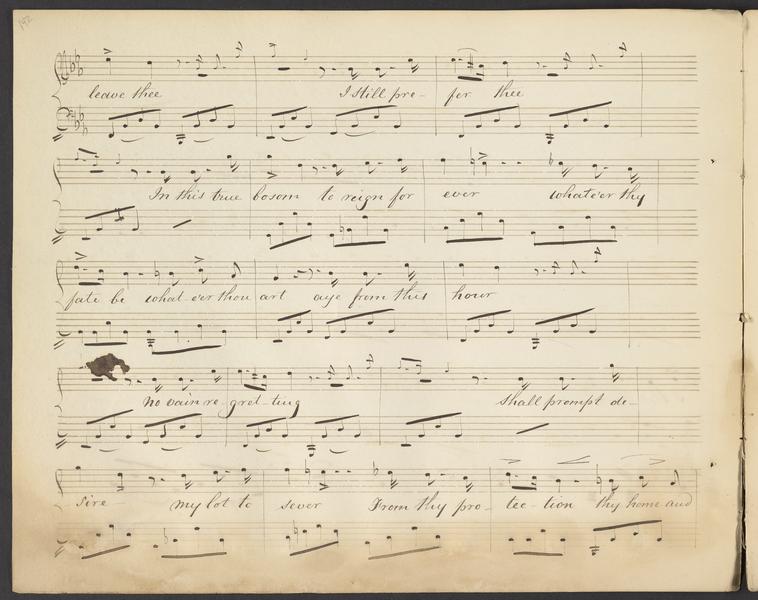 142
leave thee I still pre- fer thee
In this true bosom to reign for ever whate'er thy
fate be what-e'er thou art aye from this hour
no vain re-gret-ting shall prompt de-
sire- my lot to sever From thy pro- tec-tion thy home and